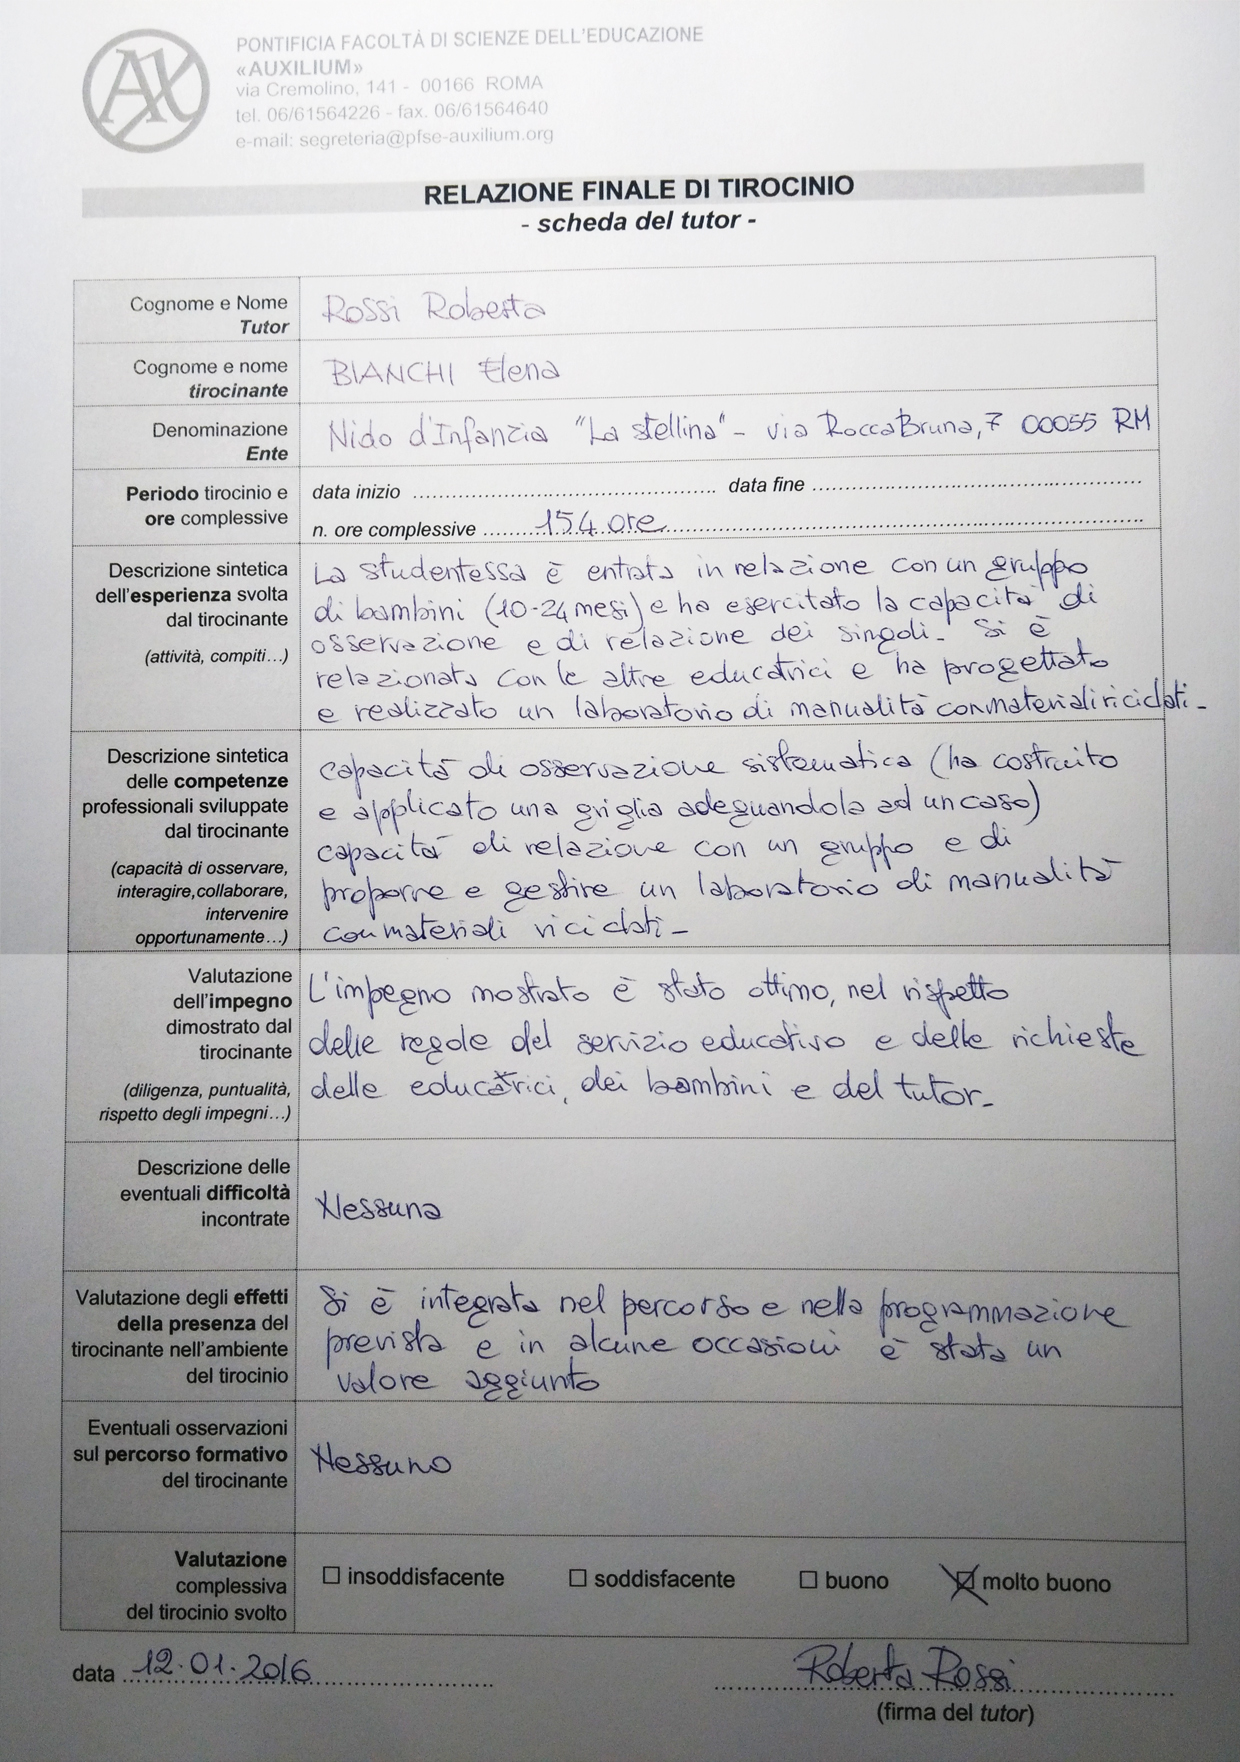 PONTIFICIA FACOLTÁ DI SCIENZE DELL'EDUCAZIONE
«AUXILIUM»
via Cremolino, 141 - 00166 ROMA
tel. 06/61564226 - fax. 06/61564640
e-mail: segreteria@pfse-auxilium.org
RELAZIONE FINALE DI TIROCINIO
- scheda del tutor -
Cognome e Nome
Tutor
Rossi Roberta
Cognome e nome
tirocinante
BIANCHI Elena
Denominazione
Ente
Nido d'Infanzia "La stellina" - via RoccaBruna, 7 00055 RM
Periodo tirocinio e
ore complessive
data inizio ........ data fine ........
n. ore complessive 154 ore
Descrizione sintetica
dell'esperienza svolta
dal tirocinante
(attività, compiti…)
La studentessa è entrata in relazione con un gruppo
di bambini (10-24 mesi) e ha esercitato la capacità di
osservazione e di relazione dei singoli. Si è
relazionata con le altre educatrici e ha progettato
e realizzato un laboratorio di manualità con materiali riciclati -
Descrizione sintetica
delle competenze
professionali sviluppate
dal tirocinante
(capacità di osservare,
interagire,collaborare,
intervenire
opportunamente…)
capacità di osservazione sistematica (ha costruito
e applicato una griglia adeguandola ad un caso)
capacità di relazione con un gruppo e di
proporre e gestire un laboratorio di manualità
con materiali riciclati -
Valutazione
dell'impegno
dimostrato dal
tirocinante
(diligenza, puntualità,
rispetto degli impegni…)
L'impegno mostrato è stato ottimo, nel rispetto
delle regole del servizio educativo e delle richieste
delle educatrici, dei bambini e del tutor.
Descrizione delle
eventuali difficoltà
incontrate
Nessuna
Valutazione degli effetti
della presenza del
tirocinante nell'ambiente
del tirocinio
Si è integrata nel percorso e nella programmazione
prevista e in alcune occasioni è stata un
valore aggiunto
Eventuali osservazioni
sul percorso formativo
del tirocinante
Nessuno
Valutazione
complessiva
del tirocinio svolto
☐ insoddisfacente ☐ soddisfacente ☐ buono ☒ molto buono
data 12.01.2016
Roberta Rossi
(firma del tutor)